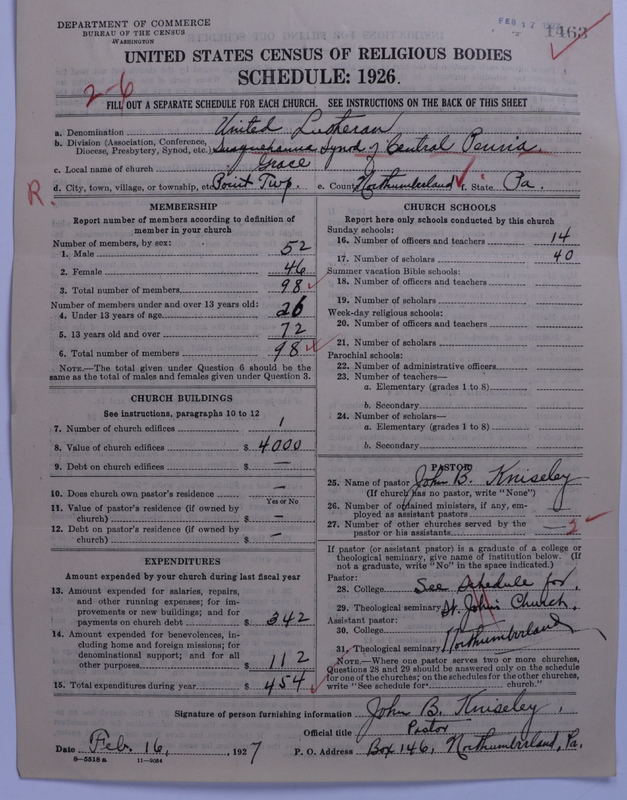 DEPARTMENT OF COMMERCE
BUREAU OF THE CENSUS
WASHINGTON
FEB 17
1463
UNITED STATES CENSUS OF RELIGIOUS BODIES
SCHEDULE: 1926.
2-6
FILL OUT A SEPARATE SCHEDULE FOR EACH CHURCH. SEE INSTRUCTIONS ON THE BACK OF THIS SHEET
a. Denomination United Lutheran
b. Division (Association, Conference, Diocese, Presbytery, Synod, etc.) Susquehanna Synod of Central Penna.
c. Local name of church Grace
R.
d. City, town, village, or township, etc. Point Twp. e. County Northumberland f. State Pa.
MEMBERSHIP
Report number of members according to definition of
member in your church
Number of members, by sex:
1. Male 52
2. Female 46
3. Total number of members 98
Number of members under and over 13 years old:
4. Under 13 years of age 26
5. 13 years old and over 72
6. Total number of members 98
NOTE.—The total given under Question 6 should be the
same as the total of males and females given under Question 3.
CHURCH BUILDINGS
See instructions, paragraphs 10 to 12
7. Number of church edifices 1
8. Value of church edifices $ 4000
9. Debt on church edifices $ —
10. Does church own pastor's residence —
Yes or No
11. Value of pastor's residence (if owned by
church) $ —
12. Debt on pastor's residence (if owned by
church) $ —
EXPENDITURES
Amount expended by your church during last fiscal year
13. Amount expended for salaries, repairs,
and other running expenses; for im-
provements or new buildings; and for
payments on church debt $ 342
14. Amount expended for benevolences, in-
cluding home and foreign missions; for
denominational support; and for all
other purposes $ 112
15. Total expenditures during year $ 454
CHURCH SCHOOLS
Report here only schools conducted by this church
Sunday schools:
16. Number of officers and teachers 14
17. Number of scholars 40
Summer vacation Bible schools:
18. Number of officers and teachers
19. Number of scholars
Week-day religious schools:
20. Number of officers and teachers
21. Number of scholars
Parochial schools:
22. Number of administrative officers
23. Number of teachers—
a. Elementary (grades 1 to 8)
b. Secondary
24. Number of scholars—
a. Elementary (grades 1 to 8)
b. Secondary
PASTOR
25. Name of pastor John B. Kniseley
(If church has no pastor, write "None")
26. Number of ordained ministers, if any, em-
ployed as assistant pastors —
27. Number of other churches served by the
pastor or his assistants — 2
If pastor (or assistant pastor) is a graduate of a college or
theological seminary, give name of institution below. (If
not a graduate, write "No" in the space indicated.)
Pastor:
28. College See Schedule for
29. Theological seminary St. John's Church.
Assistant pastor:
30. College Northumberland
31. Theological seminary
NOTE.—Where one pastor serves two or more churches,
Questions 28 and 29 should be answered only on the schedule
for one of the churches; on the schedules for the other churches,
write "See schedule for church."
Signature of person furnishing information John B. Kniseley.
Official title Pastor
Date Feb. 16, 1927 P. O. Address Box 146, Northumberland, Pa.
8-5518 a 11-9054